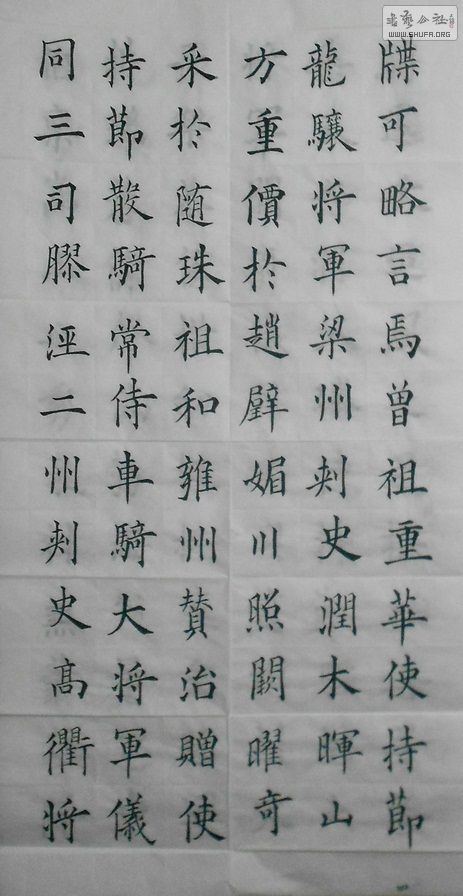 書藝公社
WWW.SHUFA.ORG
牒可略言焉曾祖重華使持節
龍驤将軍梁州刺史潤木暉山
方重價於趙璧媚川照闕曜奇
采於随珠祖和雍州贊治贈使
持節散騎常侍車騎大将軍儀
同三司膠涇二州刺史高衢将